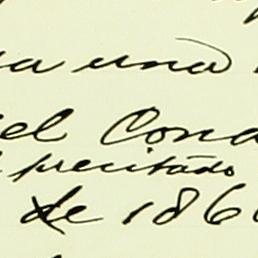 a una
el Cond
precitado
de 186